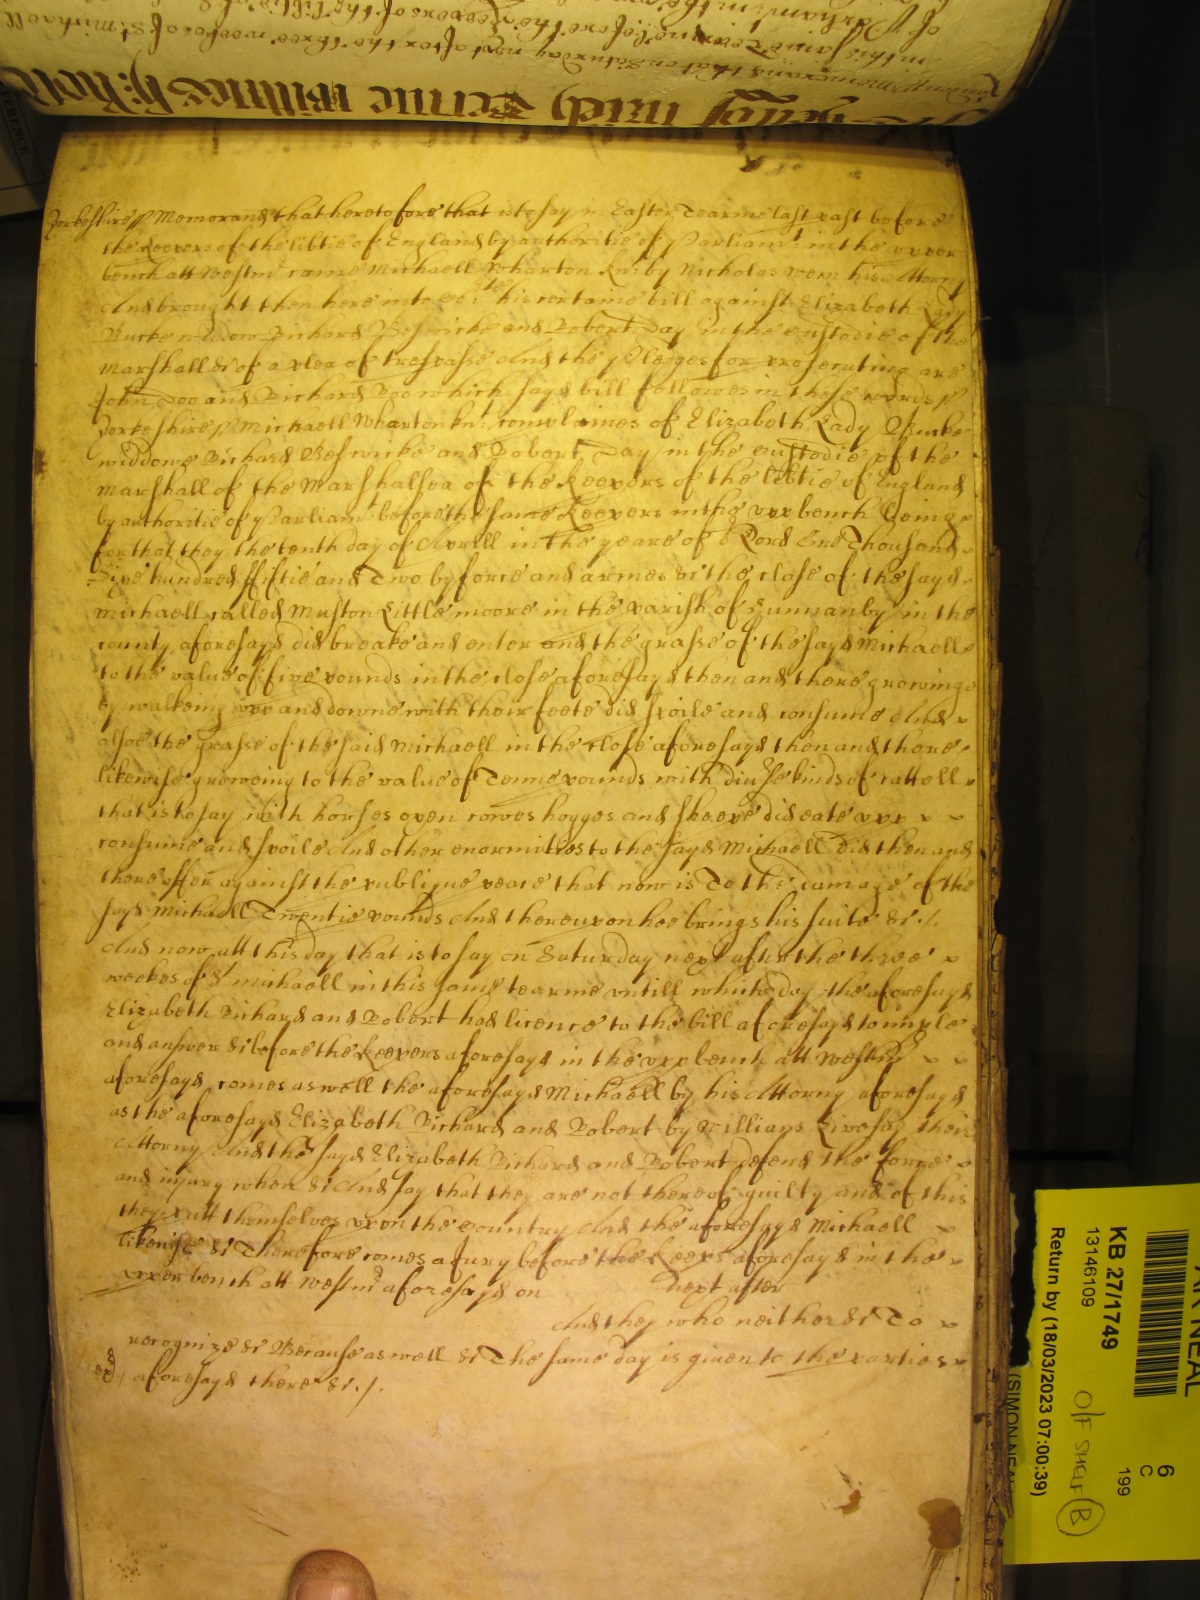 Yorkeshire ss Memorand that heretofore that is to say in Easter Tearme last past before
the Keepers of the libtie of England by authoritie of Parliamt in the upper
bench att Westmr came Michaell Wharton Knt by Nicholas his Attorny
And brought then here into his certaine bill against Elizabeth Lady
Bucke widdow Richard Beswicke and Robert Day in the custodie of the
Marshall &c of a plea of trespasse And the Pledges for prosecuting are
John Doo and Richard Roo which sayd bill followes in these words ss
Yorkeshire ss Michaell Wharton knt complaines of Elizabeth Lady Bucke
widdowe Richard Beswicke and Robert Day in the custodie of the
Marshall of the Marshalsea of the Keepers of the libtie of England
by authoritie of Parliamt before the same Keepers in the upp bench being
for that they the tenth day of Aprill in the yeare of or Lord One Thousand
Sixe hundred ffiftie and Two by force and armes &c the close of the sayd
Michaell called Muston Little moore in the parish of Hunnanby in the
county aforesayd did breake and enter and the grasse of the sayd Michaell
to the value of five pounds in the close aforesayd then and there growing
by walkeing upp and downe with their feete did spoile and consume And
alsoe the grasse of the said Michaell in the close aforesayd then and there
likewise groweing to the value of Tenne pounds with divse kinds of cattell
that is to say with horses oxen cowes hogges and sheepe did eate upp
consume and spoile And other enormities to the sayd Michaell did then and
there offer against the publique peace that now is To the damage of the
sayd Michaell Twentie pounds And thereupon hee brings his suite &c ./.
And now att this day that is to say on Saturday next after the three
weekes of St Michaell in this same tearme untill which day the aforesayd
Elizabeth Richard and Robert had licence to the bill aforesayd to imple
and answer &c before the Keepers aforesayd in the upp bench att Westmr
aforesayd comes as well the aforesayd Michaell by his Attorny aforesayd
as the aforesayd Elizabeth Richard and Robert by William Livesay their
Attorny And the sayd Elizabeth Richard and Robert defend the force
and injury when &c And say that they are not thereof guilty and of this
they putt themselves upon the Country And the aforesayd Michaell
likewise &c Therefore comes a Jury before the Keeps aforesayd in the
upper bench att Westmr aforesayd on next after
And they who neither &c To
recognize &c Because as well &c The same day is given to the parties
aforesayd there &c ./.
KB 27/1749
13146109
Return by (18/03/2023 07:00:39)
(SIMON NEAL)
O/F SHELF B
6
C
199